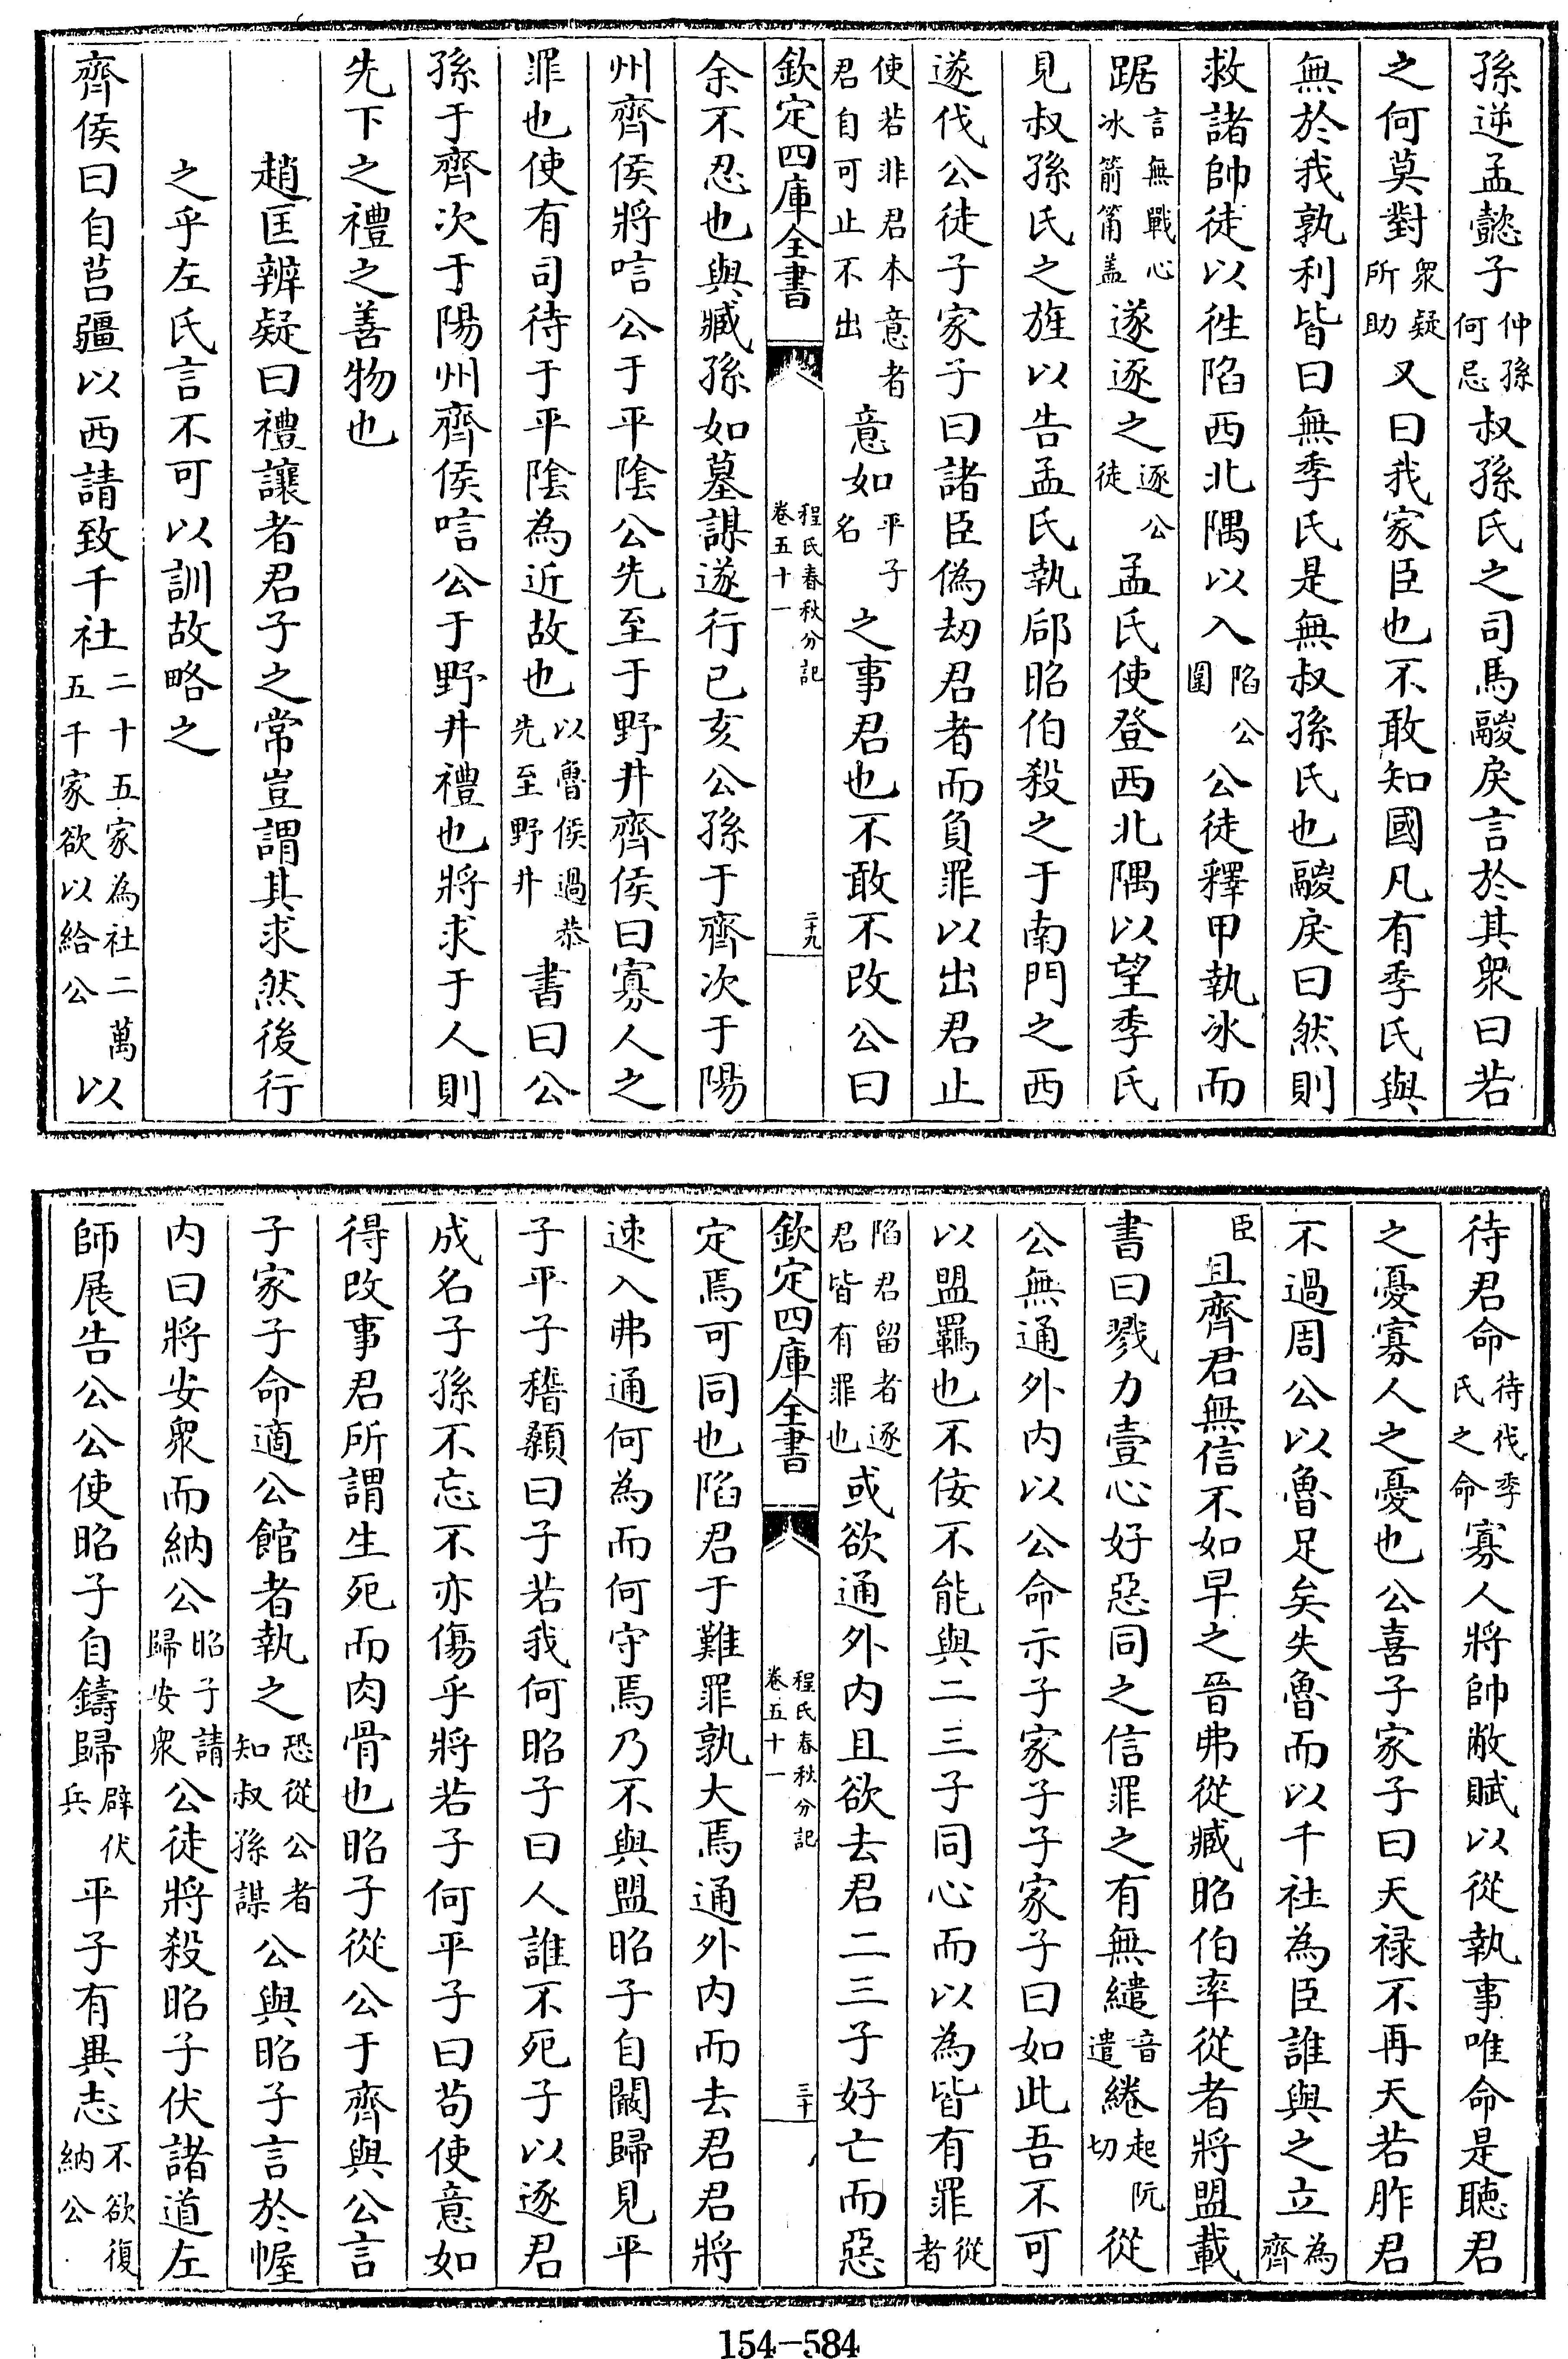 孫逆孟懿子仲孫何忌叔孫氏之司馬鬷戾言於其衆曰若
之何莫對衆疑所助又曰我家臣也不敢知國凡有季氏與
無於我孰利皆曰無季氏是無叔孫氏也鬷戾曰然則
救諸帥徒以徃陷西北隅以入陷公圍公徒釋甲執冰而
踞言無戰心冰箭筩盖遂逐之逐公徒孟氏使登西北隅以望季氏
見叔孫氏之旌以告孟氏執郈昭伯殺之于南門之西
遂伐公徒子家子曰諸臣偽劫君者而負罪以出君止
使若非君本意者君自可止不出意如平子名之事君也不敢不改公曰
欽定四庫全書
程氏春秋分記
卷五十一
二十九
余不忍也與臧孫如墓謀遂行已亥公孫于齊次于陽
州齊侯將唁公于平陰公先至于野井齊侯曰寡人之
罪也使有司待于平陰為近故也以魯侯過恭先至野井書曰公
孫于齊次于陽州齊侯唁公于野井禮也將求于人則
先下之禮之善物也
趙匡辨疑曰禮讓者君子之常豈謂其求然後行
之乎左氏言不可以訓故略之
齊侯曰自莒疆以西請致千社二十五家為社二萬五千家欲以給公以
待君命待伐季氏之命寡人將帥敝賦以從執事唯命是聽君
之憂寡人之憂也公喜子家子曰天禄不再天若胙君
不過周公以魯足矣失魯而以千社為臣誰與之立為齊
臣且齊君無信不如早之晉弗從臧昭伯率從者將盟載
書曰戮力壹心好惡同之信罪之有無繾音遣綣起阮切從
公無通外内以公命示子家子子家子曰如此吾不可
以盟羈也不佞不能與二三子同心而以為皆有罪從者
陷君留者逐君皆有罪也或欲通外内且欲去君二三子好亡而惡
欽定四庫全書
程氏春秋分記
卷五十一
三十
定焉可同也陷君于難罪孰大焉通外内而去君君將
速入弗通何為而何守焉乃不與盟昭子自闞歸見平
子平子稽顙曰子若我何昭子曰人誰不死子以逐君
成名子孫不忘不亦傷乎將若子何平子曰苟使意如
得改事君所謂生死而肉骨也昭子從公于齊與公言
子家子命適公館者執之恐從公者知叔孫謀公與昭子言於幄
内曰將安衆而納公昭子請歸安衆公徒將殺昭子伏諸道左
師展告公公使昭子自鑄歸辟伏兵平子有異志不欲復納公
154-584